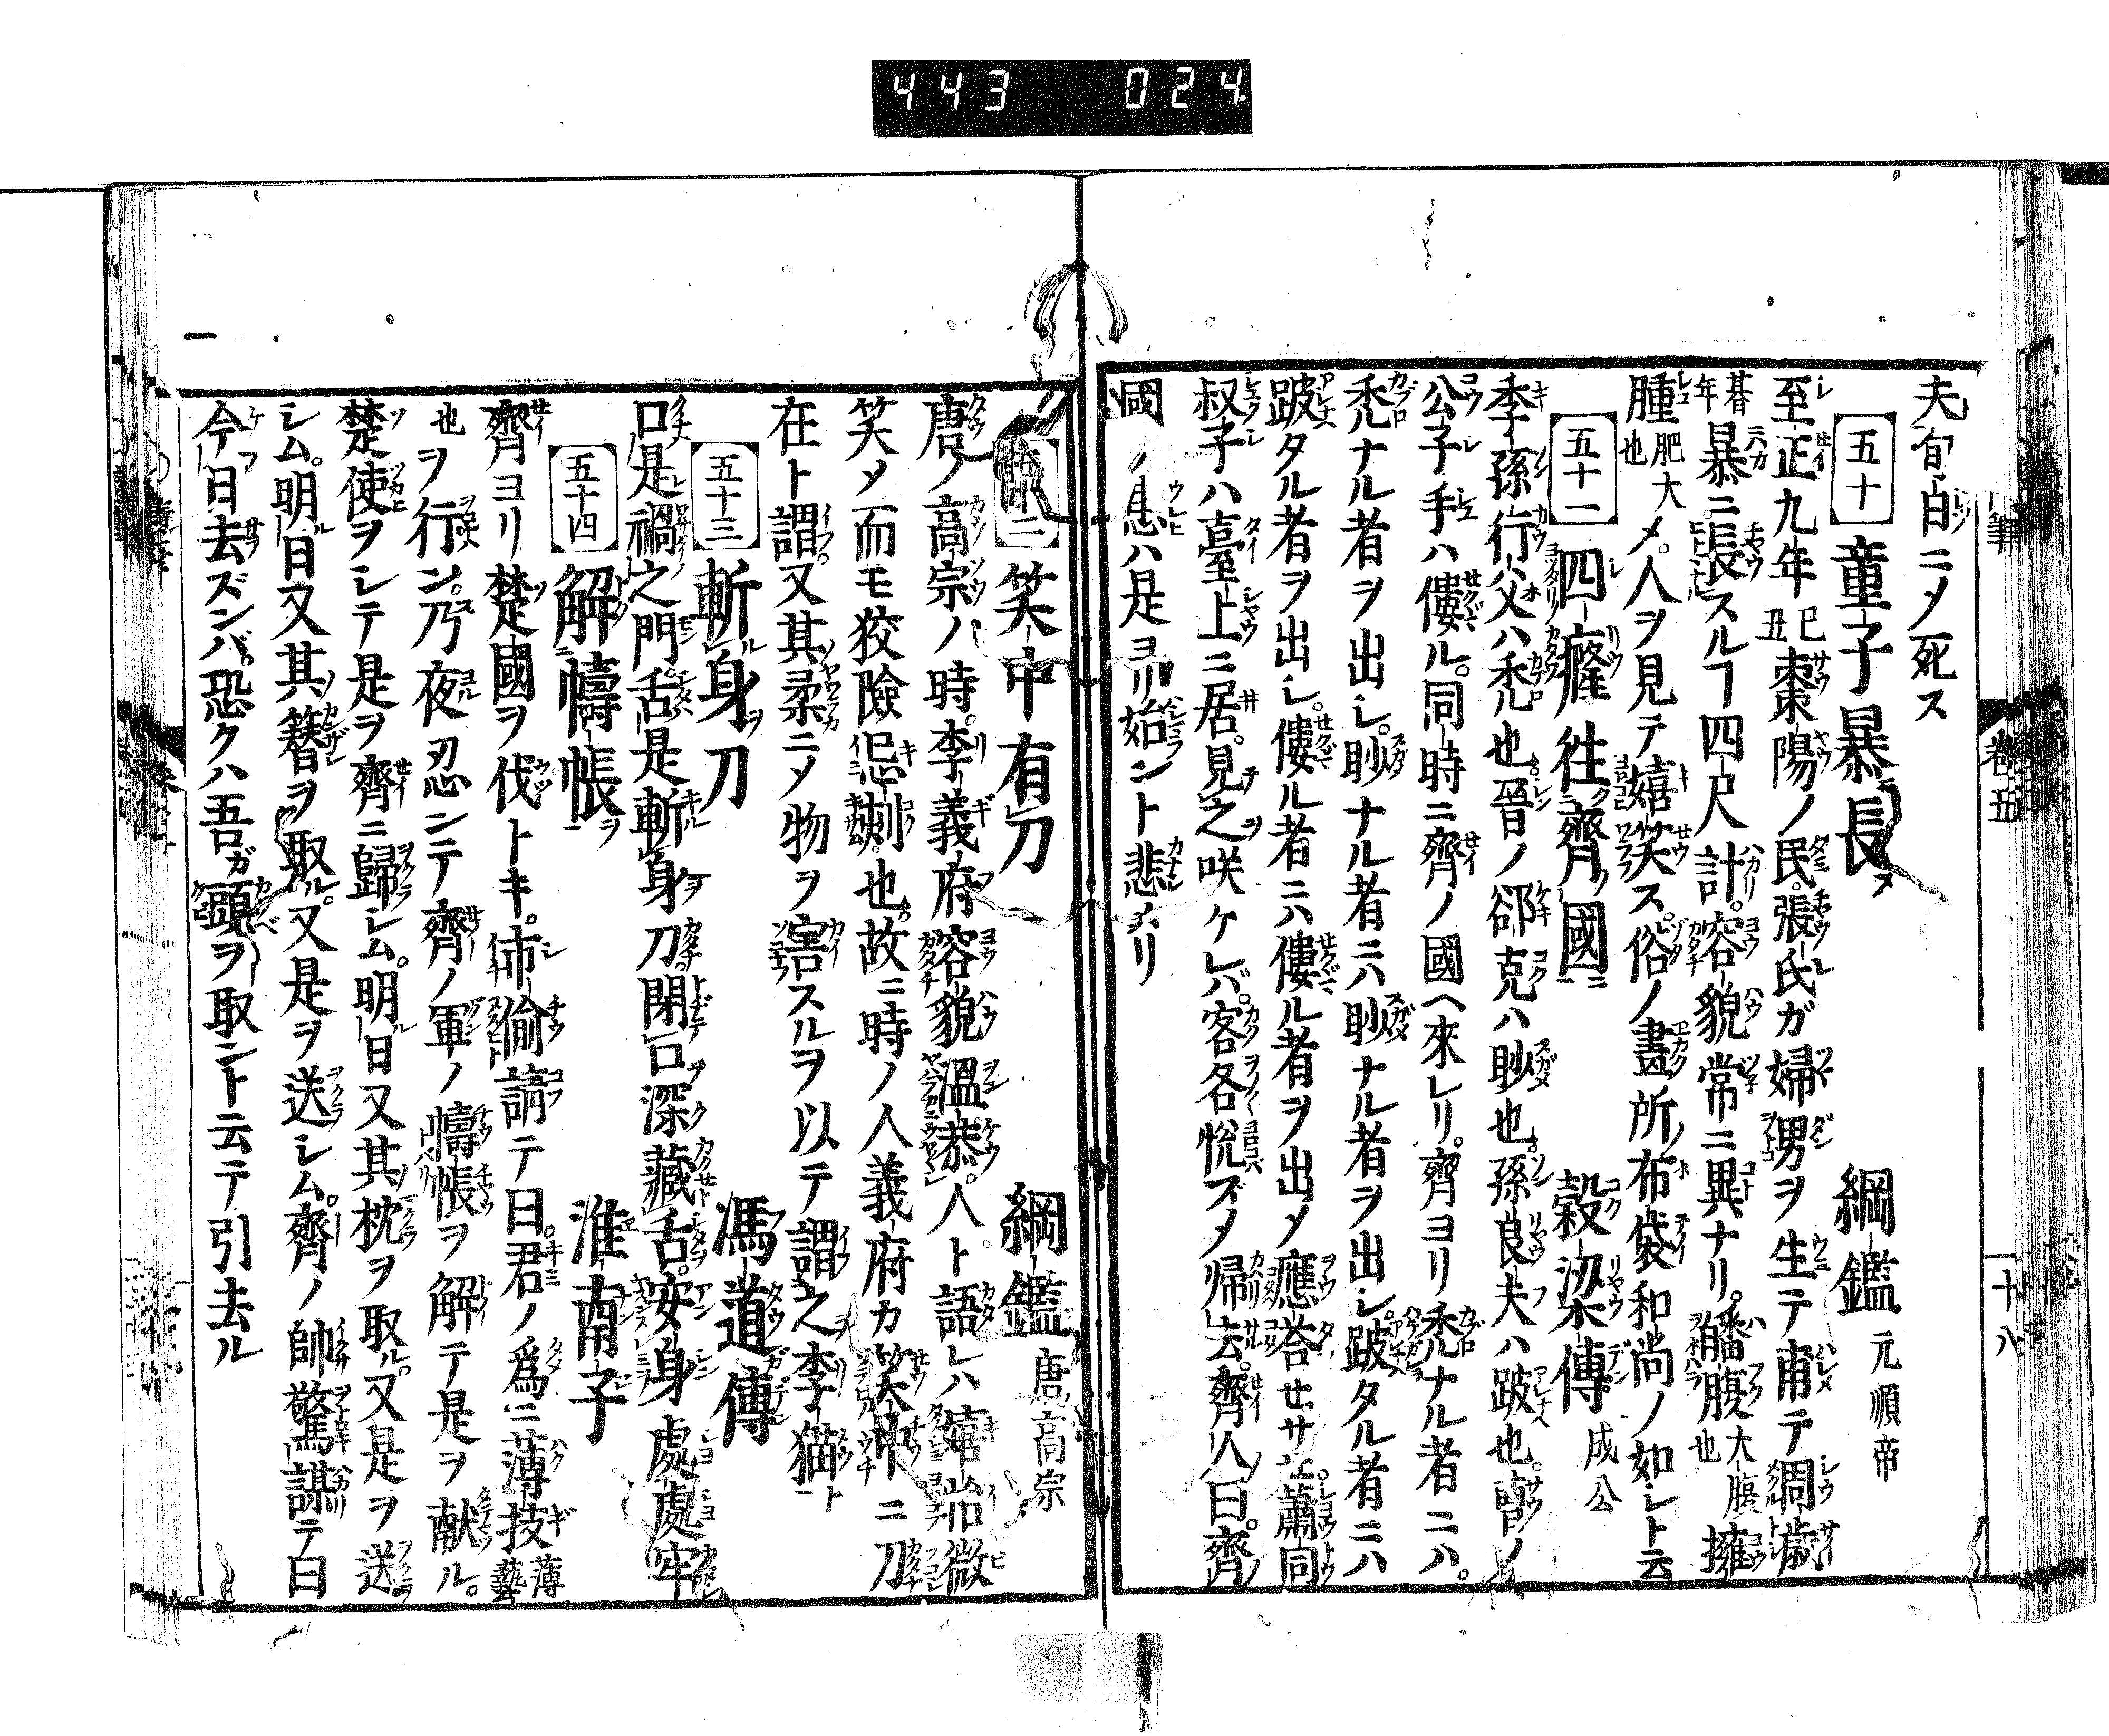 443 024
夫旬_日ニ〆死ス
五十 童子暴長ス 綱鑑 元順帝
至正九年己丑棗陽ノ民張氏ガ婦男ヲ生テ甫テ周歳
朞年暴ニ長スルヿ四尺計容貌常ニ異ナリ皤腹大腹也擁
腫肥大也〆人ヲ見テ嬉笑ス俗ノ畫所布袋和尚ノ如シト云
五十一 四癃徃齊國ニ 穀梁傳 成公
季孫行父ハ禿也晉ノ郤克ハ眇也孫良夫ハ跛也曹ノ
公子手ハ僂ル同時ニ齊ノ國ヘ來レリ齊ヨリ禿ナル者ニハ
禿ナル者ヲ出シ眇ナル者ニハ眇ナル者ヲ出シ跛タル者ニハ
跛タル者ヲ出シ僂ル者ニハ僂ル者ヲ出〆應荅セサス蕭同
叔子ハ臺上ニ居見之咲ケレバ客各悅ズ〆帰去齊人曰齊
國ノ患ハ是ヨリ始ント悲メリ
巻五
十八
笑中有刀 綱鑑 唐高宗
唐ノ高宗ノ時李義府容貌溫恭人ト語レハ嬉怡微
笑〆而モ狡險忌刻也故ニ時ノ人義府カ笑中ニ刀
在ト謂又其柔ニ〆物ヲ害スルヲ以テ謂之李猫ト
五十三 斬身刀 馮道傳
口是禍之門舌是斬身刀閉口深藏舌安身處處牢
五十四 解幬帳ヲ 淮南子
齊ヨリ楚國ヲ伐トキ市偷請テ曰君ノ爲ニ薄技薄藝
也ヲ行ン乃夜忍ンテ齊ノ軍ノ幬帳ヲ解テ是ヲ献ル
楚使ヲシテ是ヲ齊ニ歸シム明日又其枕ヲ取ル又是ヲ送
シム明日又其簪ヲ取ル又是ヲ送シム齊ノ帥驚謀テ曰
今日去ズンバ恐クハ吾ガ頭ヲ取ント云テ引去ル